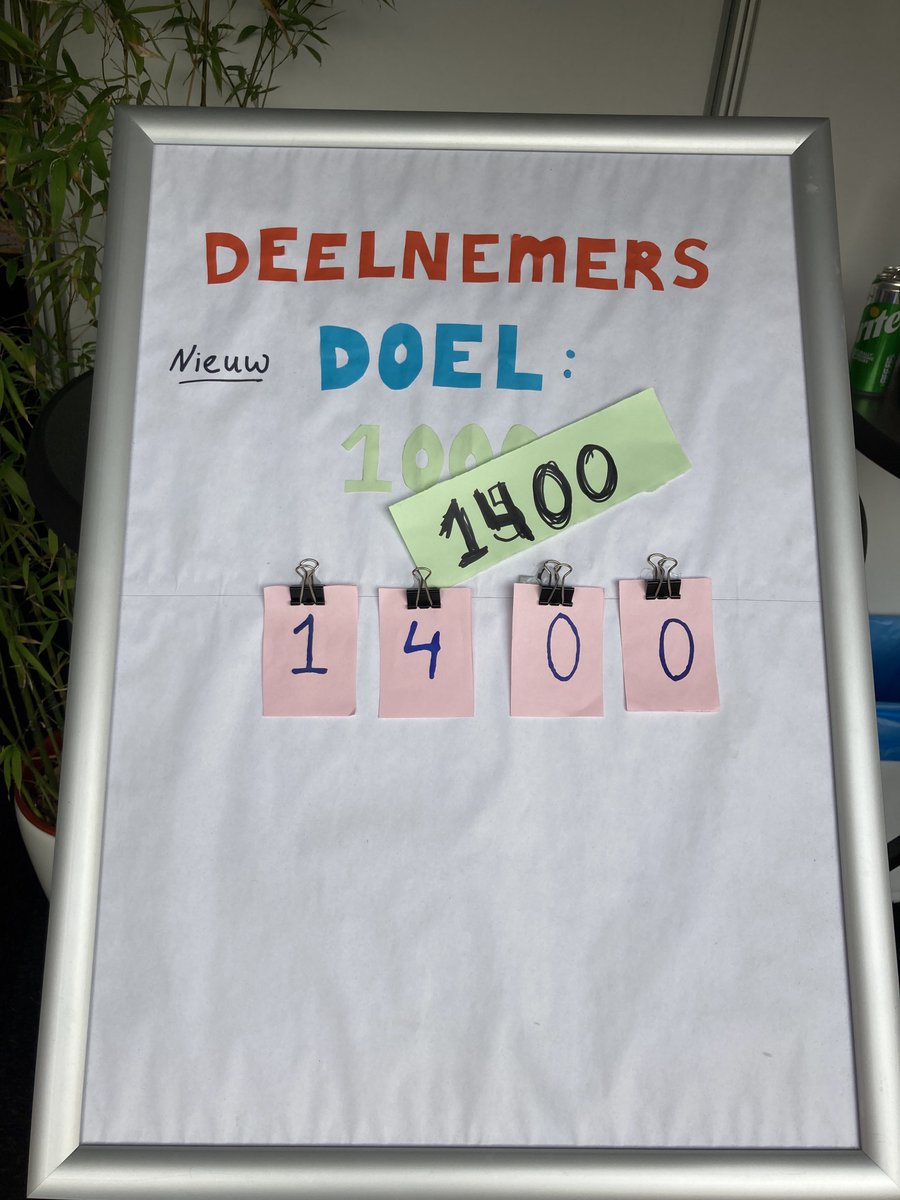 DEELNEMERS
Nieuw DOEL:
1000
1400
1 4 0 0